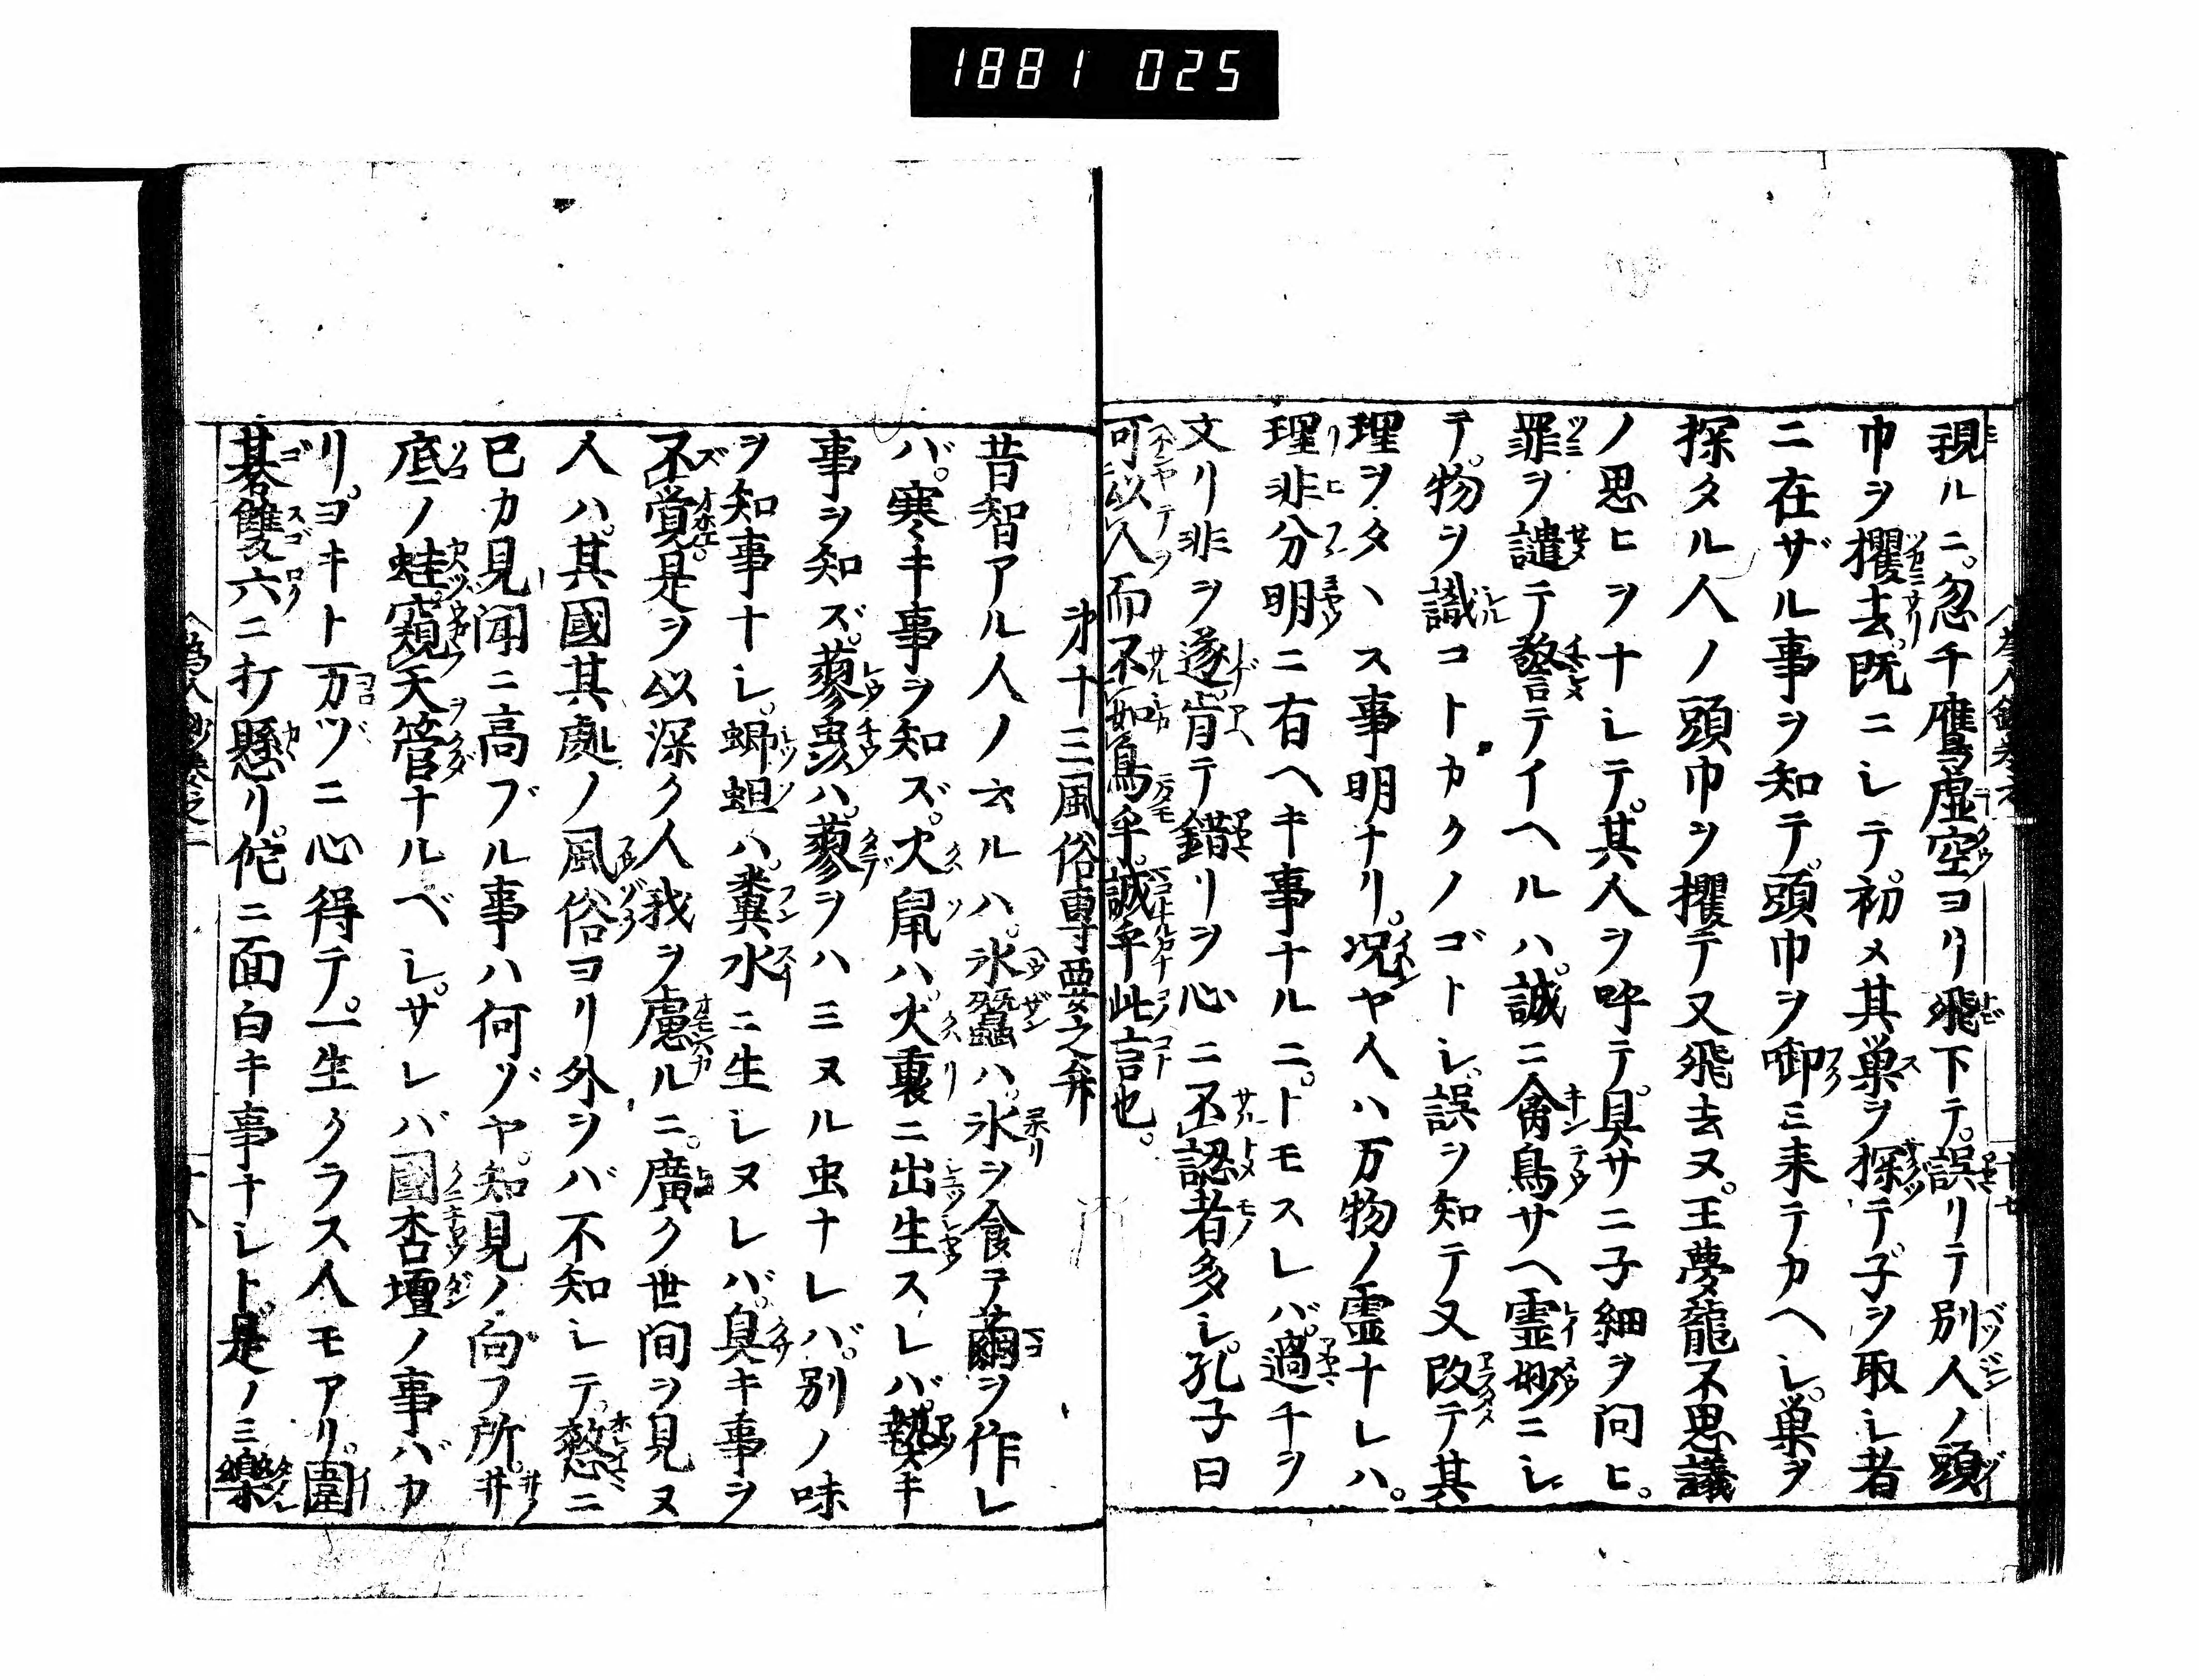 1881 025
視ルニ。忽チ鷹虚空ヨリ飛下テ。誤リテ別人ノ頭
巾ヲ攫去。既ニシテ。初メ其巣ヲ探テ子ヲ取シ者
ニ在ザル事ヲ知テ。頭巾ヲ啣ミ来テカヘシ。巣ヲ
探タル人ノ頭巾ヲ攫テ又飛去ヌ。王夢龍不思議
ノ思ヒヲナシテ。其人ヲ呼テ。具サニ子細ヲ問ヒ。
罪ヲ譴テ警テイヘルハ。誠ニ禽鳥サヘ霊妙ニシ
テ。物ヲ識コトカクノゴトシ。誤ヲ知テ又改テ其
理ヲタヽス事明ナリ。况ヤ人ハ万物ノ霊ナレハ。
理非分明ニ有ヘキ事ナルニ。トモスレバ。過チヲ
文リ非ヲ遂。肯テ錯リヲ心ニ不認者多シ。孔子曰
可以人而不如鳥乎。誠乎此言也。
第十三風俗専要之弁
昔智アル人ノ云ルハ。氷蚕ハ。氷ヲ食ヲ繭ヲ作レ
バ。寒キ事ヲ知ズ。火鼠ハ。火裏ニ出生スレバ。熱キ
事ヲ知ズ。蓼虫ハ。蓼ヲハミヌル虫ナレバ。別ノ味
ヲ知事ナシ。蝍蛆ハ。糞水ニ生レヌレバ。臭キ事ヲ
不覚。是ヲ以深ク人我ヲ慮ルニ。廣ク世間ヲ見ヌ
人ハ。其國其處ノ風俗ヨリ外ヲバ不知シテ。憖ニ
已カ見聞ニ高ブル事ハ何ゾヤ。知見ノ向フ所。井
底ノ蛙。窺天管ナルベシ。サレバ國杏壇ノ事バカ
リ。ヨキト万ヅニ心得テ。一生クラス人モアリ。圍
碁雙六ニ打懸リ。佗ニ面白キ事ナシト。是ノミ樂